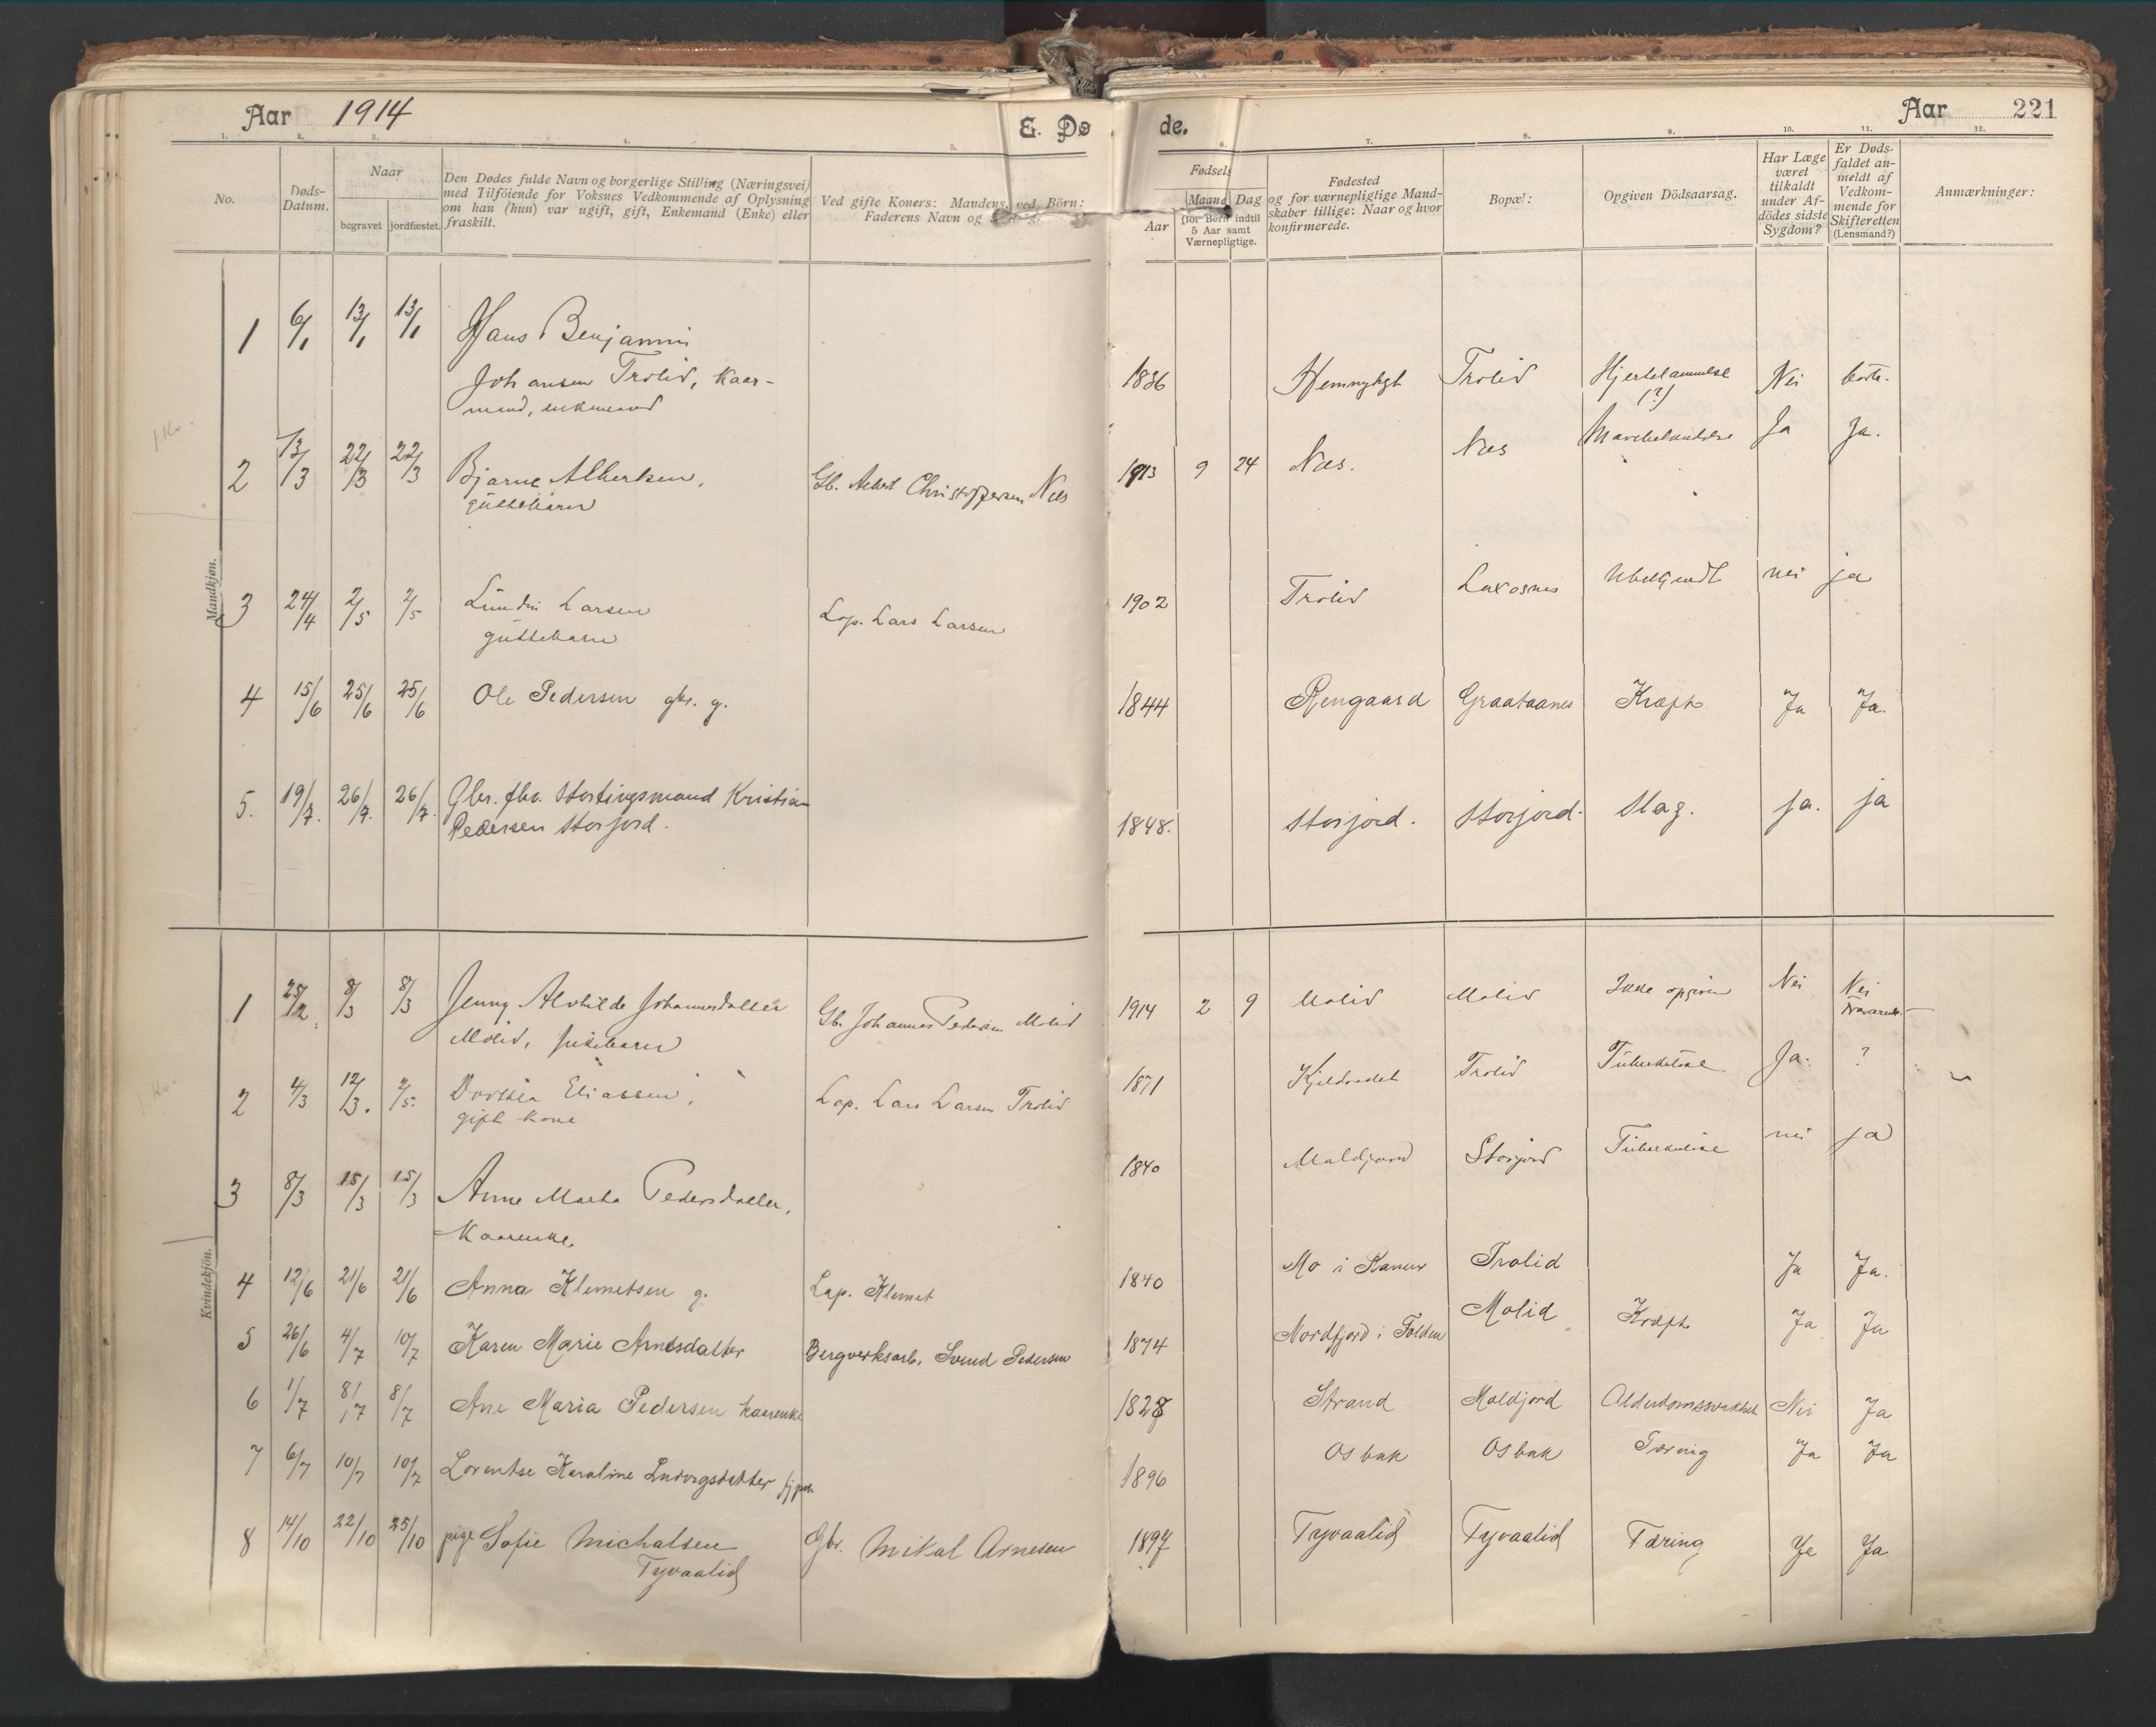 Aar 1914
E. Dø de.
Aar 221
1. 2. 3. 4. 5. 6. 7. 8. 9. 10. 11. 12.
No.
Døds-
Datum.
Naar
begravet jordfæstet.
Den Dødes fulde Navn og borgerlige Stilling (Næringsvei)
med Tilföiende for Voksnes Vedkommende af Oplysning
om han (hun) var ugift, gift, Enkemand (Enke) eller
fraskilt.
Ved gifte Koners: Mandens, ved Börn:
Faderens Navn og
Fødsels
Aar
Maaned Dag
(for Børn indtil
5 Aar samt
Værnepligtige.
Fødested
og for værnepligtige Mand-
skaber tillige: Naar og hvor
konfirmerede.
Bopæl:
Opgiven Dödsaarsag.
Har Læge
været
tilkaldt
under Af-
dödes sidste
Sygdom?
Er Døds-
faldet an-
meldt af
Vedkom-
mende for
Skifteretten
(Lensmand?)
Anmærkninger:
Mandkjøn.
1 6/1 13/1 13/1 Hans Benjamin
Johansen Trolid, Kaar-
mand, enkemand
1836 Trolid Hjertelammelse Nei
(?)
2 13/3 22/3 22/3 Bjarne Albertsen, Gb. Albert Christoffersen Nes 1913 9 24 Næs. Næs Ja Ja.
guttebarn
3 24/4 2/5 2/5 Lundin Larsen Lap. Lars Larsen 1902 Trolid Laxosnes Ubekjendt nei ja
guttebarn
4 15/6 25/6 25/6 Ole Pedersen gbr. g. 1844 Rengaard Graataanes Kræft Ja Ja.
5. 19/7. 26/7. 26/7. Gbr. fhv. Stortingsmand Kristian 1848. Storjord. Storjord. Slag. ja. ja
Pedersen Storjord.
Kvindekjön.
1 25/2 8/3 8/3 Jenny Alvhilde Johannesdatter Gb. Johannes Pedersen Molid 1914 2 9 Molid Molid Ikke opgiven Nei Nei
Molid, pikebarn
2 4/3 12/3. 2/5. Dorthea Eliassen, Lap. Lars Larsen Trolid 1871 Trolid Tuberkulose Ja. ?
gift kone
3 8/3 15/3 15/3 Anne Marta Pedersdatter, 1840 Moldjord Storjord Tuberkulose nei ja
Kaarenke
4 12/6 21/6 21/6 Anna Klemetsen g. Lap. Klemet 1840 Mo i Ranen Trolid Ja Ja.
5 26/6 4/7 10/7 Karen Marie Arnesdatter Bergverksarb. Svend Pedersen 1874 Nordfjord i Folden Molid Kræft Ja Ja
6 1/7 8/7 8/7 Ane Maria Pedersen kaarenke 1828 Strand Moldjord Alderdomssvakhet Nei Ja
7 6/7 10/7 10/7 Lorentse Karoline Ludvigsdatter 1896 Osbak Osbak Tæring Ja Ja
8 14/10 22/10 25/10 pige Sofie Michalsen Gbr. Mikal Arnesen 1897 Tyvaalid Tyvaalid Tæring Ja Ja
Tyvaalid